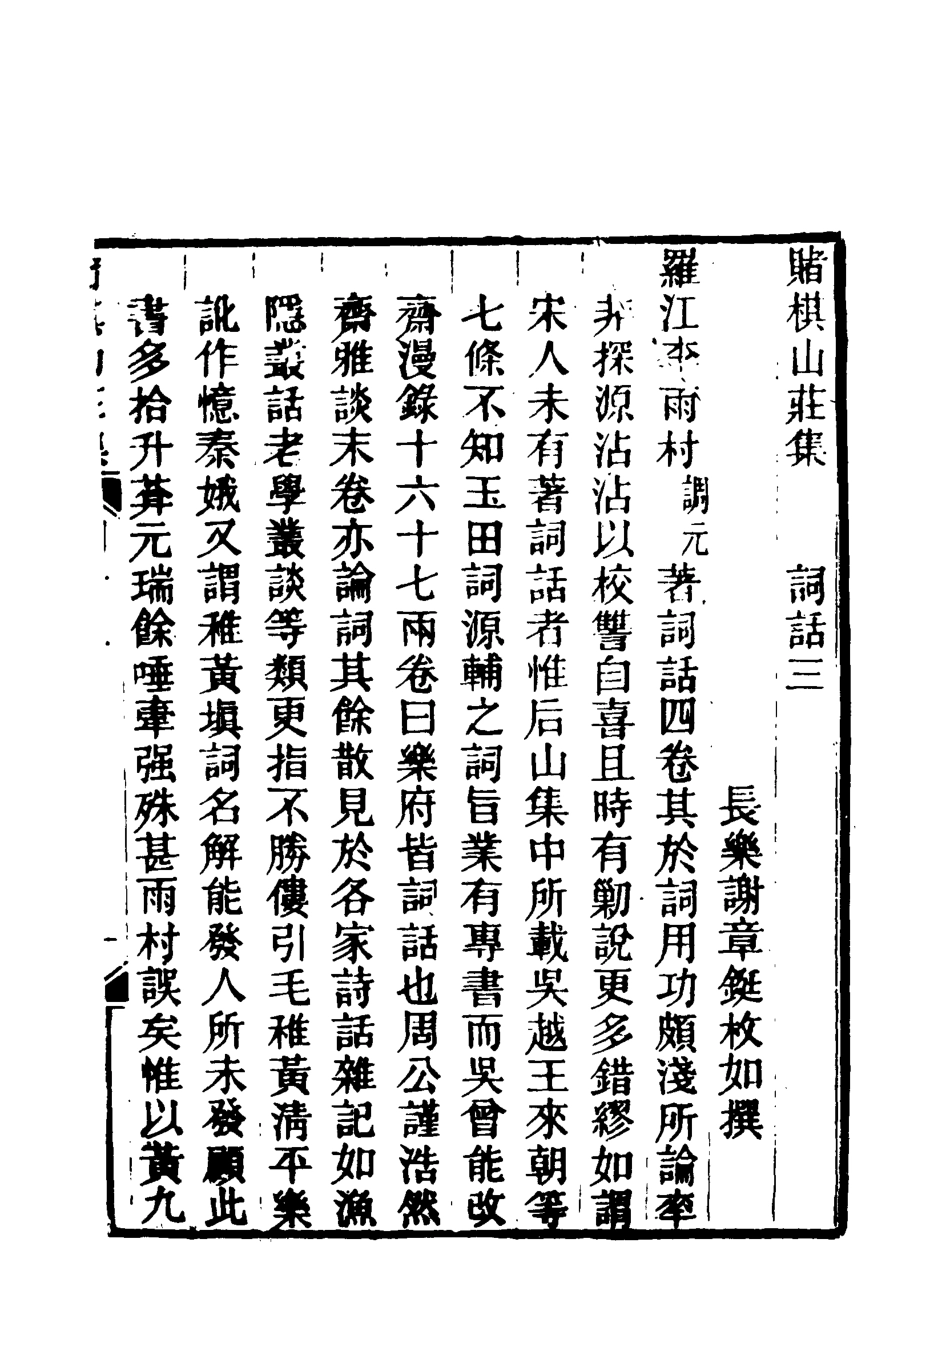 賭棋山莊集　詞話三
長樂謝章鋌枚如撰
羅江李雨村調元著詞話四卷其於詞用功頗淺所論率
非探源沾沾以校讐自喜且時有勦說更多錯繆如謂
宋人未有著詞話者惟后山集中所載吳越王來朝等
七條不知玉田詞源輔之詞旨業有專書而吳曾能改
齋漫錄十六十七兩卷曰樂府皆詞話也周公謹浩然
齋雅談末卷亦論詞其餘散見於各家詩話雜記如漁
隱叢話老學叢談等類更指不勝僂引毛稚黃淸平樂
訛作憶秦娥又謂稚黃塡詞名解能發人所未發顧此
書多拾升葊元瑞餘唾牽强殊甚雨村誤矣惟以黃九